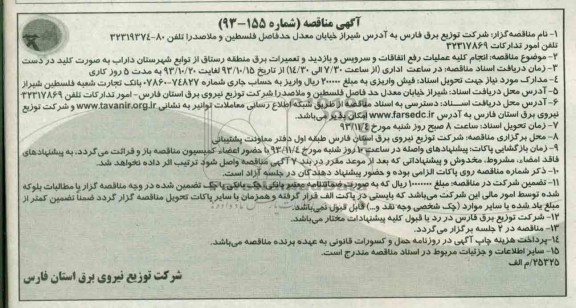 آگهی مناقصه (شماره ۱۵۵-۹۳)
۱- نام مناقصه‌گزار: شرکت توزیع برق فارس به آدرس شیراز خیابان معدل حدفاصل فلسطین و ملاصدرا تلفن ۸۰-۳۲۳۱۹۳۷۴
تلفن امور تدارکات ۳۲۳۱۷۸۶۹
۲- موضوع مناقصه: انجام کلیه عملیات رفع اتفاقات و سرویس و بازدید و تعمیرات برق منطقه رستاق از توابع شهرستان داراب به صورت کلید در دست
۳- زمان دریافت اسناد مناقصه: در ساعات اداری (از ساعت ۷/۳۰ الی ۱۴/۳۰) از تاریخ ۹۳/۱۰/۱۵ لغایت ۹۳/۱۰/۲۰ به مدت ۵ روز کاری
۴- مدارک مورد نیاز جهت تحویل اسناد: فیش واریزی به مبلغ ۲۰۰۰۰۰ ریال واریز به حساب جاری شماره ۷۴۸۲۷-۰۷۸۶۰ بانک تجارت شعبه فلسطین شیراز
۵- آدرس محل دریافت اسناد: شیراز خیابان معدل حد فاصل فلسطین و ملاصدرا شرکت توزیع نیروی برق استان فارس - امور تدارکات تلفن ۳۲۳۱۷۸۶۹
۶- آدرس محل دریافت اسـناد: دسترسی به اسناد مناقصه از طریق شبکه اطلاع رسانی معاملات توانیر به نشانی www.tavanir.org.ir و شرکت توزیع
نیروی برق استان فارس به آدرس www.farsedc.ir امکان پذیر می‌باشد.
۷- زمان تحویل اسناد: ساعت ۸ صبح روز شنبه مورخ ۹۳/۱۱/۴
۸- محل برگزاری مناقصه: شرکت توزیع نیروی برق استان فارس طبقه اول دفتر معاونت پشتیبانی
۹- زمان بازگشایی پاکات: پیشنهادهای واصله در ساعت ۱۲ روز شنبه مورخ ۹۳/۱۱/۴ با حضور اعضاء کمیسیون مناقصه باز و قرائت می‌گردد. به پیشنهادهای
فاقد امضاء، مشروط، مخدوش و پیشنهاداتی که بعد از موعد مقرر در بند ۷ آگهی مناقصه واصل شود ترتیب اثر داده نخواهد شد.
۱۰- ذکر شماره مناقصه روی پاکات الزامی بوده و حضور پیشنهاد دهندگان در جلسه آزاد است.
۱۱- تضمین شرکت در مناقصه: مبلغ ۱۰۰۰۰۰۰۰ ریال که به صورت ضمانتنامه معتبر بانکی، چک بانکی یا چک تضمین شده در وجه مناقصه گزار یا مطالبات بلوکه
شده توسط امور مالی این شرکت می‌باشد که بایستی در پاکت الف قرار گرفته و همزمان با سایر پاکات تحویل مناقصه گزار گردد ضمناً تضمین کمتر از
مبلغ یاد شده یا سایر موارد (چک شخصی وجه نقد و...) قابل قبول نمی‌باشد.
۱۲- شرکت توزیع برق فارس در رد یا قبول کلیه پیشنهادات مختار می‌باشد.
۱۳- مناقصه در ۲ جلسه برگزار می‌گردد.
۱۴-پرداخت هزینه چاپ آگهی در روزنامه حمل و کسورات قانونی به عهده برنده مناقصه می‌باشد.
۱۵- سایر اطلاعات و جزئیات مربوط در اسناد مناقصه مندرج است.
۲۵۳۲۵/م الف
شرکت توزیع نیروی برق استان فارس